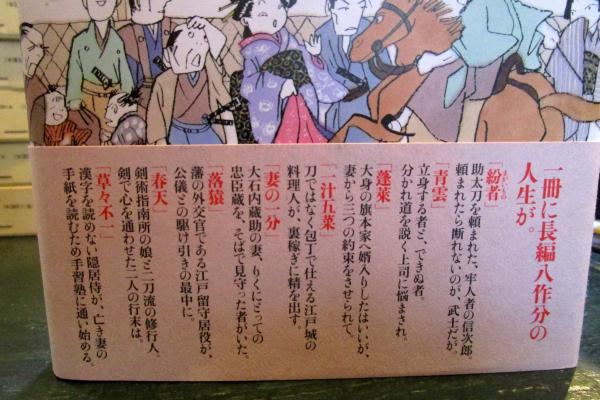 一冊に長編八作分の
人生が。
「紛者」
まがいもの
助太刀を頼まれた、牢人者の信次郎。
頼まれたら断れないのが、武士だが。
「青雲」
立身する者と、できぬ者。
分かれ道を説く上司に悩まされ。
「蓬莱」
大身の旗本家へ婿入りしたはいいが、
妻から三つの約束をさせられて。
「一汁五菜」
刀ではなく包丁で仕える江戸城の
料理人が、裏稼ぎに精を出す。
「妻の一分」
大石内蔵助の妻、りくにとっての
忠臣蔵を、そばで見守った者がいた。
「落猿」
藩の外交官である江戸留守居役が、
公儀との駆け引きの最中に。
「春天」
剣術指南所の娘と二刀流の修行人。
剣で心を通わせた二人の行末は。
「草々不一」
漢字を読めない隠居侍が、亡き妻の
手紙を読むため手習塾に通い始める。